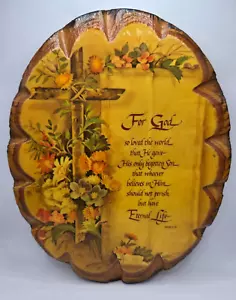 For God
so loved the world,
that He gave
His only begotten Son,
that whoever
believes in Him
should not perish,
but have
Eternal Life